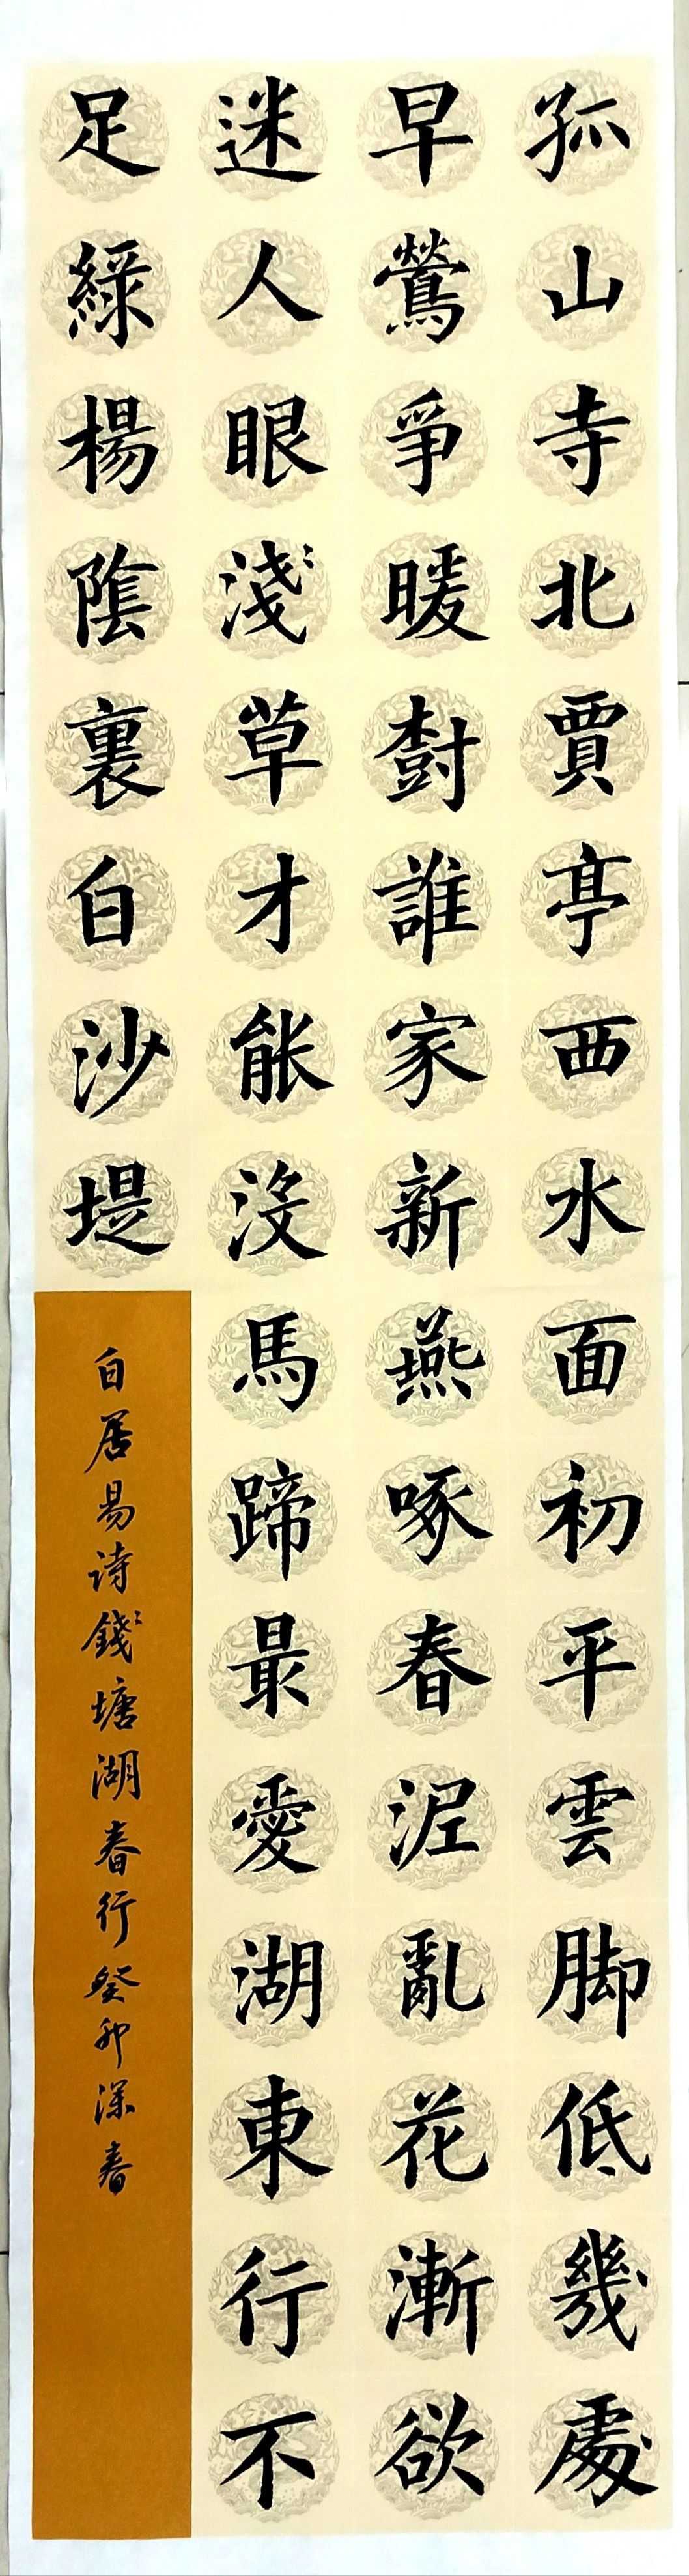 孤山寺北賈亭西水面初平雲脚低幾處
早鶯爭暖樹誰家新燕啄春泥亂花漸欲
迷人眼淺草才能没馬蹄最愛湖東行不
足綠楊陰裏白沙堤
白居易诗錢塘湖春行癸卯深春